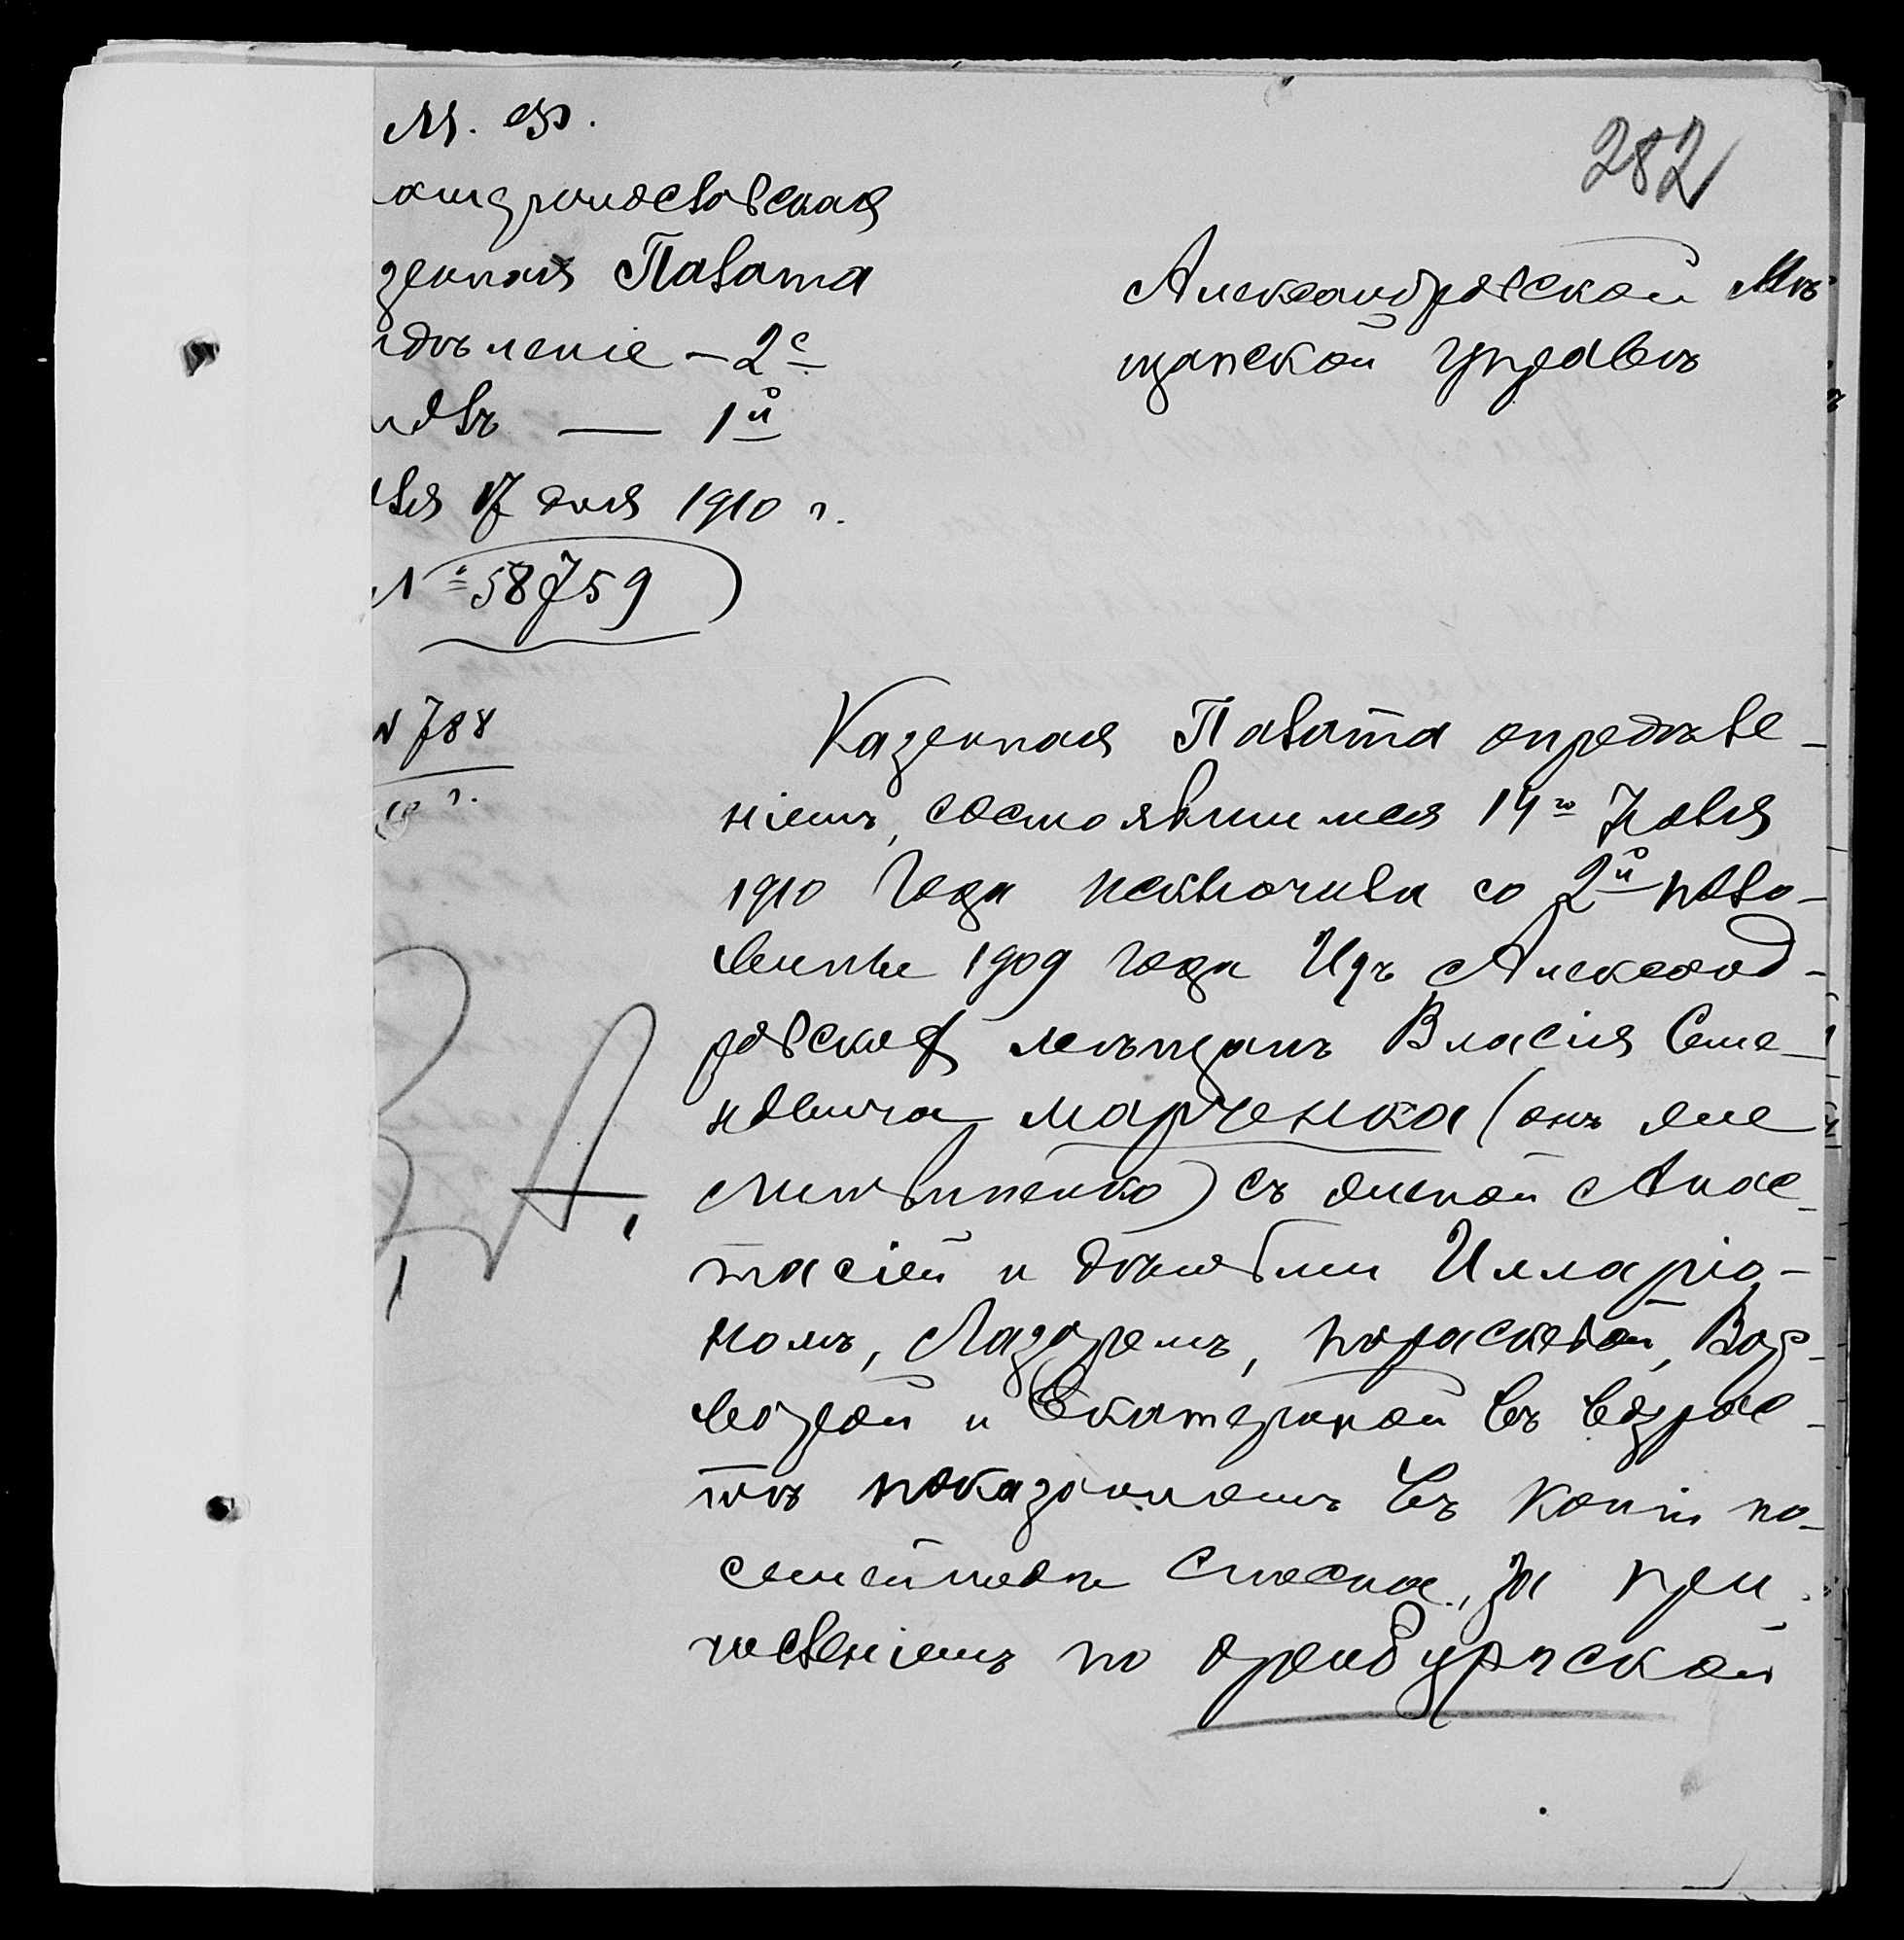 М. Ф.
катеринославская
зенная Палата
тдѣленіе – 2е
столъ — 1й
юля 17 дня 1910 г.
№ 58759
282
Александровской Мѣ-
щанской Управѣ
№ 788
10 г.
Казенная Палата опредѣле-
ніемъ, состоявшимся 14го Іюля
1910 года исключила со 2й поло-
вины 1909 года изъ Александ-
ровскихъ мѣщанъ Власія Семе-
новича Марченка (онъ же
Литвиненко) съ женой Анас-
тасіей и дѣтьми Илларіо-
номъ, Лазаремъ, Параскевой, Вар-
варой и Екатериной въ возрас-
тѣ показанномъ въ копіи по-
семейного списка, за при-
численіемъ по Оренбургской